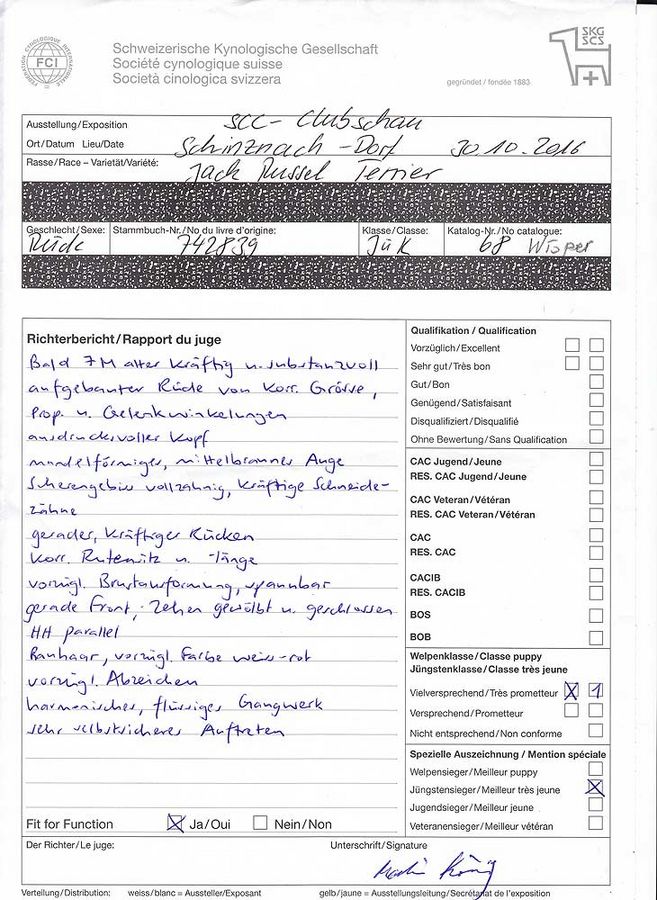 FÉDÉRATION CYNOLOGIQUE INTERNATIONALE
FCI
Schweizerische Kynologische Gesellschaft
Société cynologique suisse
Società cinologica svizzera
SKG
SCS
gegründet / fondée 1883
Ausstellung/Exposition SCC- Clubschau
Ort/Datum Lieu/Date Schinznach-Dorf 30.10.2016
Rasse/Race – Varietät/Variété: Jack Russel Terrier
Geschlecht/Sexe: Stammbuch-Nr./No du livre d'origine: Klasse/Classe: Katalog-Nr./No catalogue:
Rüde 742839 JüK 68 Wisper
Richterbericht/Rapport du juge
Bald 7M alter kräftig u. substanzvoll
aufgebauter Rüde von korr. Grösse,
Prop. u. Gelenkwinkelungen
ausdrucksvoller Kopf
mandelförmiges, mittelbraunes Auge
Scherengebiss vollzahnig, kräftige Schneide-
zähne
gerader, kräftiger Rücken
korr. Rutensitz u. -länge
vorzügl. Brustausformung, spannbar
gerade Front, Zehen gewölbt u. geschlossen
HH parallel
Rauhaar, vorzügl. Farbe weiss-rot
vorzügl. Abzeichen
harmonisches, flüssiges Gangwerk
sehr selbstsicheres Auftreten
Fit for Function Ja/Oui Nein/Non
Qualifikation / Qualification
Vorzüglich/Excellent
Sehr gut/Très bon
Gut/Bon
Genügend/Satisfaisant
Disqualifiziert/Disqualifié
Ohne Bewertung/Sans Qualification
CAC Jugend/Jeune
RES. CAC Jugend/Jeune
CAC Veteran/Vétéran
RES. CAC Veteran/Vétéran
CAC
RES. CAC
CACIB
RES. CACIB
BOS
BOB
Welpenklasse/Classe puppy
Jüngstenklasse/Classe très jeune
Vielversprechend/Très prometteur X 1
Versprechend/Prometteur
Nicht entsprechend/Non conforme
Spezielle Auszeichnung / Mention spéciale
Welpensieger/Meilleur puppy
Jüngstensieger/Meilleur très jeune X
Jugendsieger/Meilleur jeune
Veteranensieger/Meilleur vétéran
Der Richter/Le juge: Unterschrift/Signature
König
Verteilung/Distribution: weiss/blanc = Aussteller/Exposant gelb/jaune = Ausstellungsleitung/Secrétariat de l'exposition